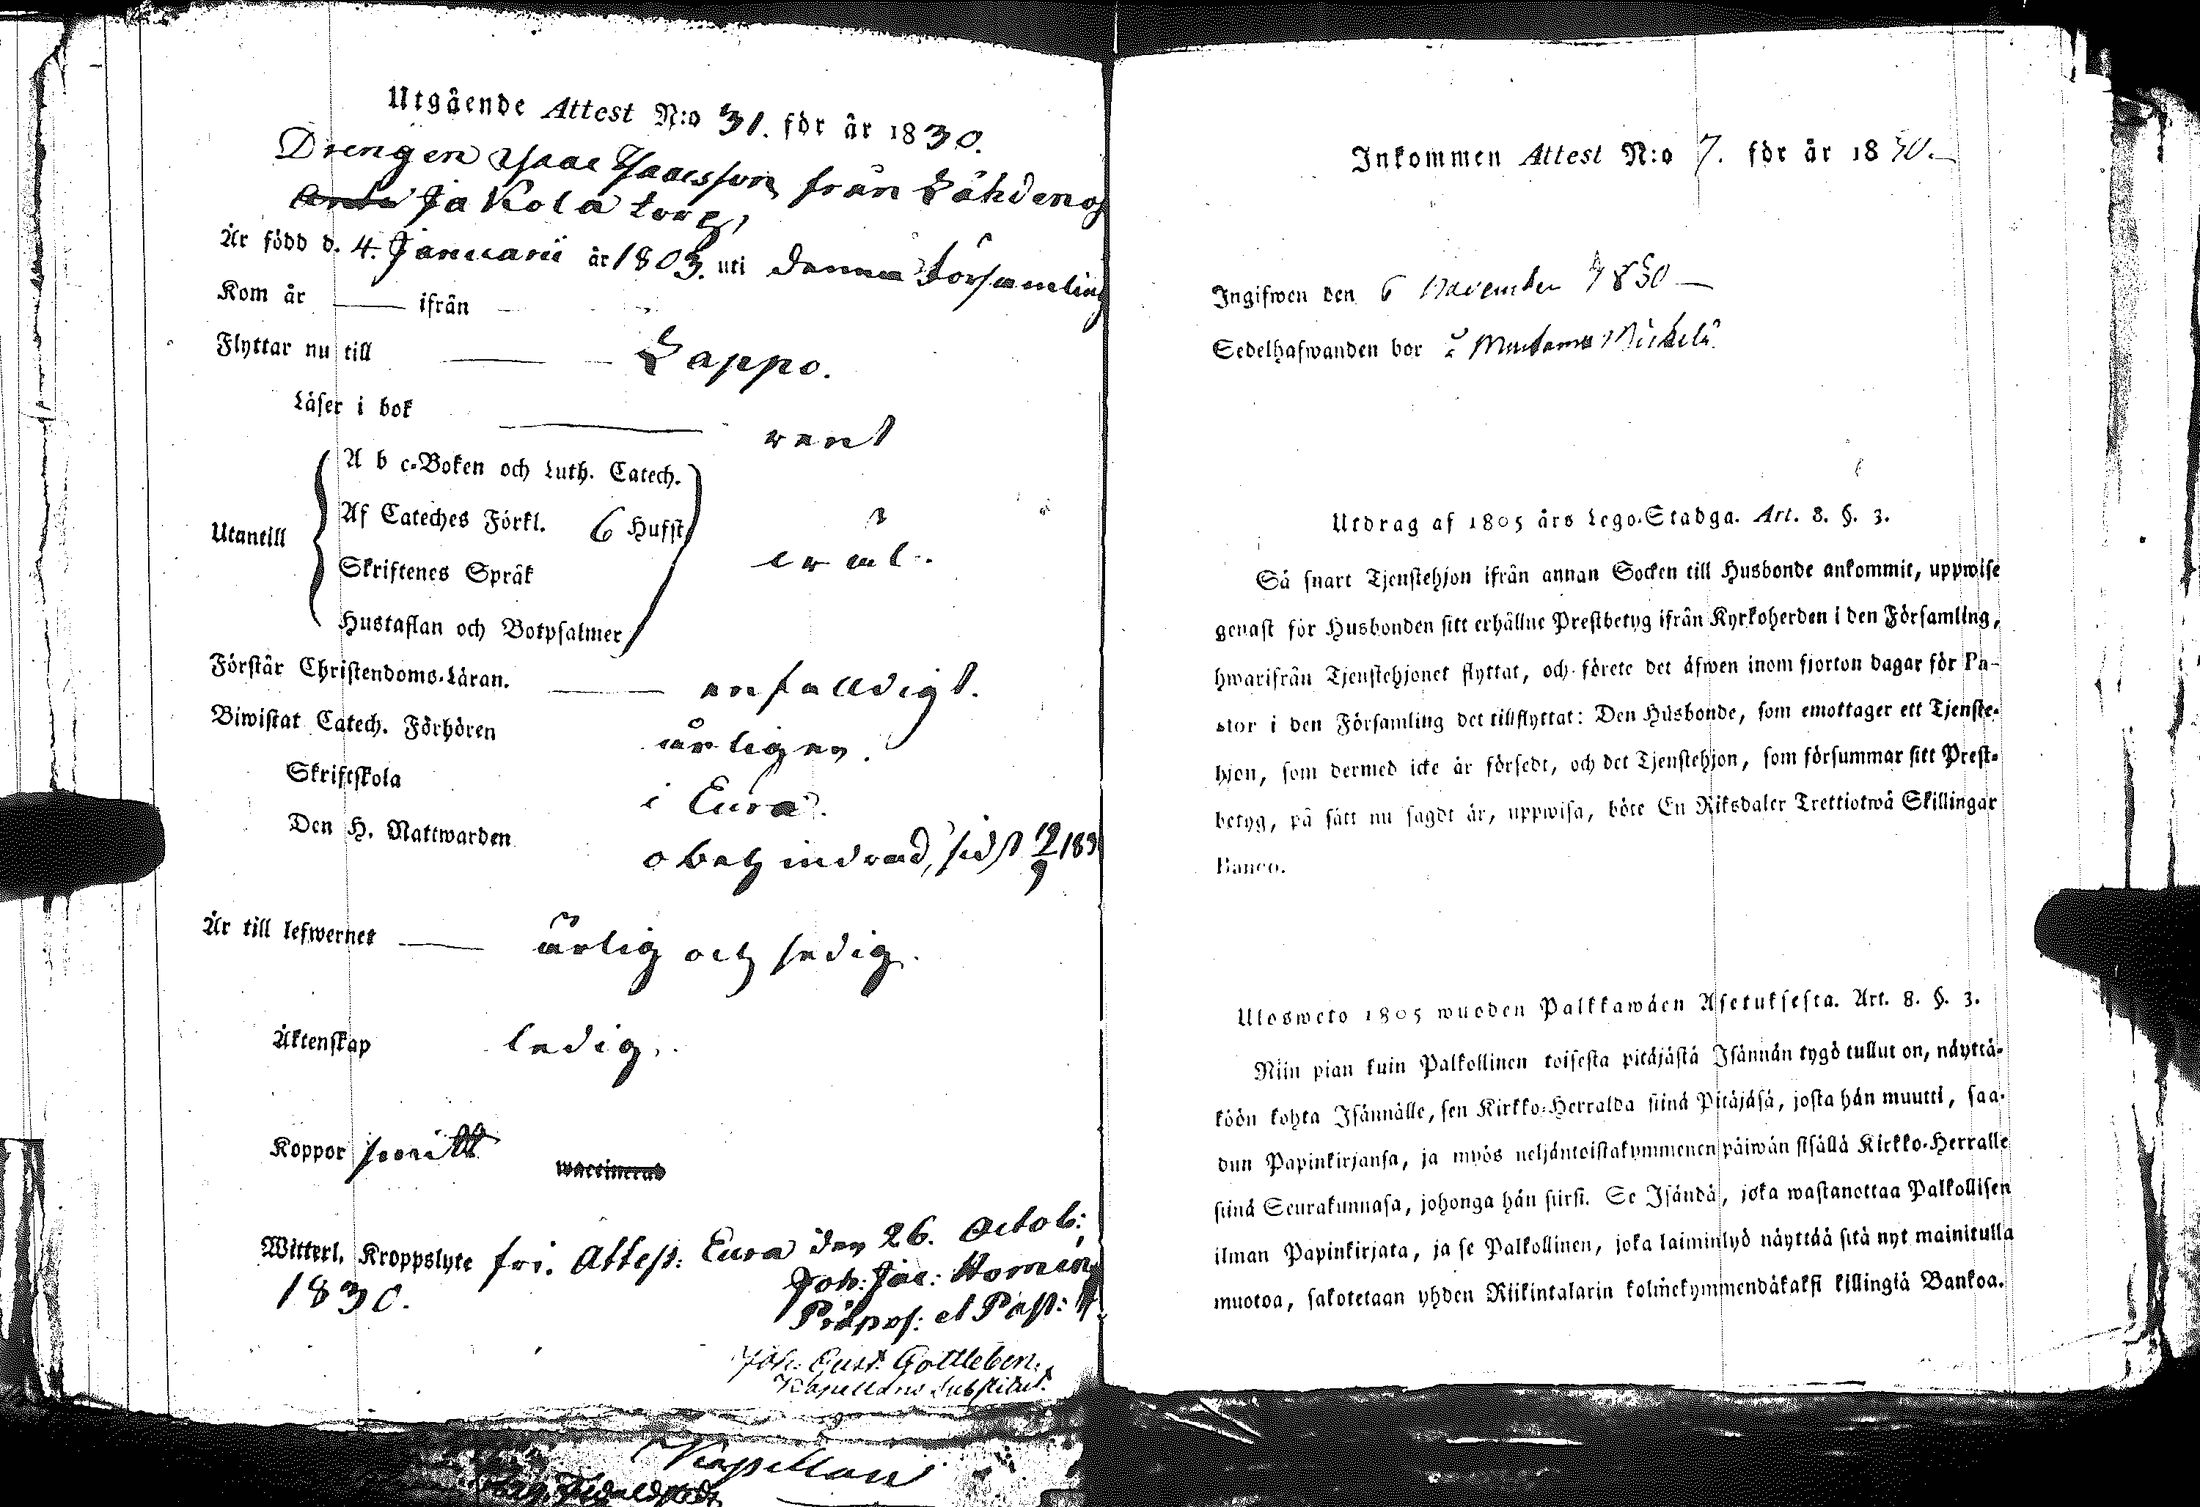 Utgående Attest N:o 31. för år 1830.
Drengen Isaac Isaacsson från Lähdenoja
Jakola torp,
Är född d. 4. Januarii år 1803. uti denna Församling
Kom år — ifrån
Flyttar nu till — — Lappo.
Läser i bok — rent
Utantill
A b c-Boken och Luth. Catech.
Af Cateches Förkl. 6 Hufst.
Skriftenes Språk
Hustaflan och Botpsalmer
Förstår Christendoms-Läran. — enfalldigt.
Biwistat Catech. Förhören årligen.
Skriftskola i Eura.
Den H. Nattwarden obehindrad, sidst 12/9 183
Är till lefwernet — ärlig och sedig.
Äktenskap ledig.
Koppor
waccinerad
Witterl. Kroppslyte fri. Attest: Eura den 26. Octob:
1830.
Joh: Jac:
Præpos: et Past:
Joh: Gust: Gottleben.
Kapellans Substitut.
Kapellan
Inkommen Attest N:o 7. för år 1830.
Ingifwen den 6 November 1830
Sedelhafwanden bor
Utdrag af 1805 års Lego-Stadga. Art. 8. §. 3.
Så snart Tjenstehjon ifrån annan Socken till Husbonde ankommit, uppwise
genast för Husbonden sitt erhållne Prestbetyg ifrån Kyrkoherden i den Församling,
hwarifrån Tjenstehjonet flyttat, och förete det äfwen inom fjorton dagar för Pa-
stor i den Församling det tillflyttat: Den Husbonde, som emottager ett Tjenste-
hjon, som dermed icke är försedt, och det Tjenstehjon, som försummar sitt Prest-
betyg, på sätt nu sagdt är, uppwisa, böte En Riksdaler Trettiotwå Skillingar
Banco.
Ulosweto 1805 wuoden Palkkawäen Asetuksesta. Art. 8. §. 3.
Niin pian kuin Palkollinen toisesta pitäjästä Isännän tygö tullut on, näyttä-
köön kohta Isännälle, sen Kirkko-Herralda siinä Pitäjäsä, josta hän muutti, saa-
dun Papinkirjansa, ja myös neljäntoistakymmenen päiwän sisällä Kirkko-Herralle
siinä Seurakunnasa, johonga hän siirsi. Se Isändä, joka wastanottaa Palkollisen
ilman Papinkirjata, ja se Palkollinen, joka laiminlyö näyttää sitä nyt mainitulla
muotoa, sakotetaan yhden Riikintalarin kolmekymmendäkaksi killingiä Bankoa.